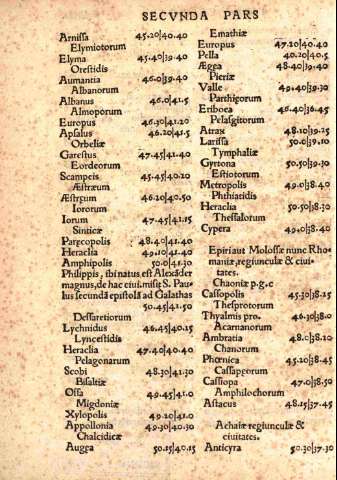 SECVNDA PARS
Arnissa 45.20|40.40
Elymiotorum
Elyma 45.40|39.40
Orestidis
Aumantia 46.0|39.40
Albanorum
Albanus 46.0|41.5
Almoporum
Europus 46.30|41.20
Apsalus 46.20|41.5
Orbeliæ
Garestus 47.45|41.40
Eordeorum
Scampeis 45.45|40.20
Æstræum
Æstrum 46.20|40.50
Iororum
Iorum 47.45|41.15
Sinticæ
Parecopolis 48.40|41.40
Heraclia 49.10|41.40
Amphipolis 50.0|41.30
Philippis, ibi natus est Alexãder
magnus, de hac ciui. misit S. Pau-
lus secundã epistolã ad Galathas
50.45|41.50
Dessaretiorum
Lychnidus 46.45|40.15
Lyncestidis
Heraclia 47.40|40.40
Pelagonarum
Scobi 48.30|41.30
Bisaltiæ
Ossa 49.45|41.0
Migdoniæ
Xylopolis 49.20|41.0
Appollonia 49.30|40.30
Chalcidicæ
Augea 50.15|40.15
Emathiæ
Europus 47.20|40.40
Pella 40.20|40.5
Ægea 48.40|39.40
Pieriæ
Valle 49.40|39.30
Parthigorum
Eriboea 46.40|36.45
Pelasgitorum
Atrax 48.10|39.25
Larissa 50.0|39.10
Tymphaliæ
Gyrtona 50.50|39.30
Estiotorum
Metropolis 49.0|38.40
Phthiatidis
Heraclia 50.50|38.30
Thessalorum
Cypera 49.0|38.40
Epiri aut Molossæ nunc Rho
maniæ, regiunculæ & ciui-
tates.
Chaoniæ p.g.c
Cassopolis 45.30|38.25
Thesprotorum
Thyalmis pro. 46.30|38.0
Acarnanorum
Ambratia 48.0|38.20
Chanorum
Phœnica 45.20|38.45
Cassaporum
Cassiopa 47.0|38.50
Amphilochorum
Astacus 48.15|37.45
Achaiæ regiunculæ &
ciuitates.
Anticyra 50.30|37.30